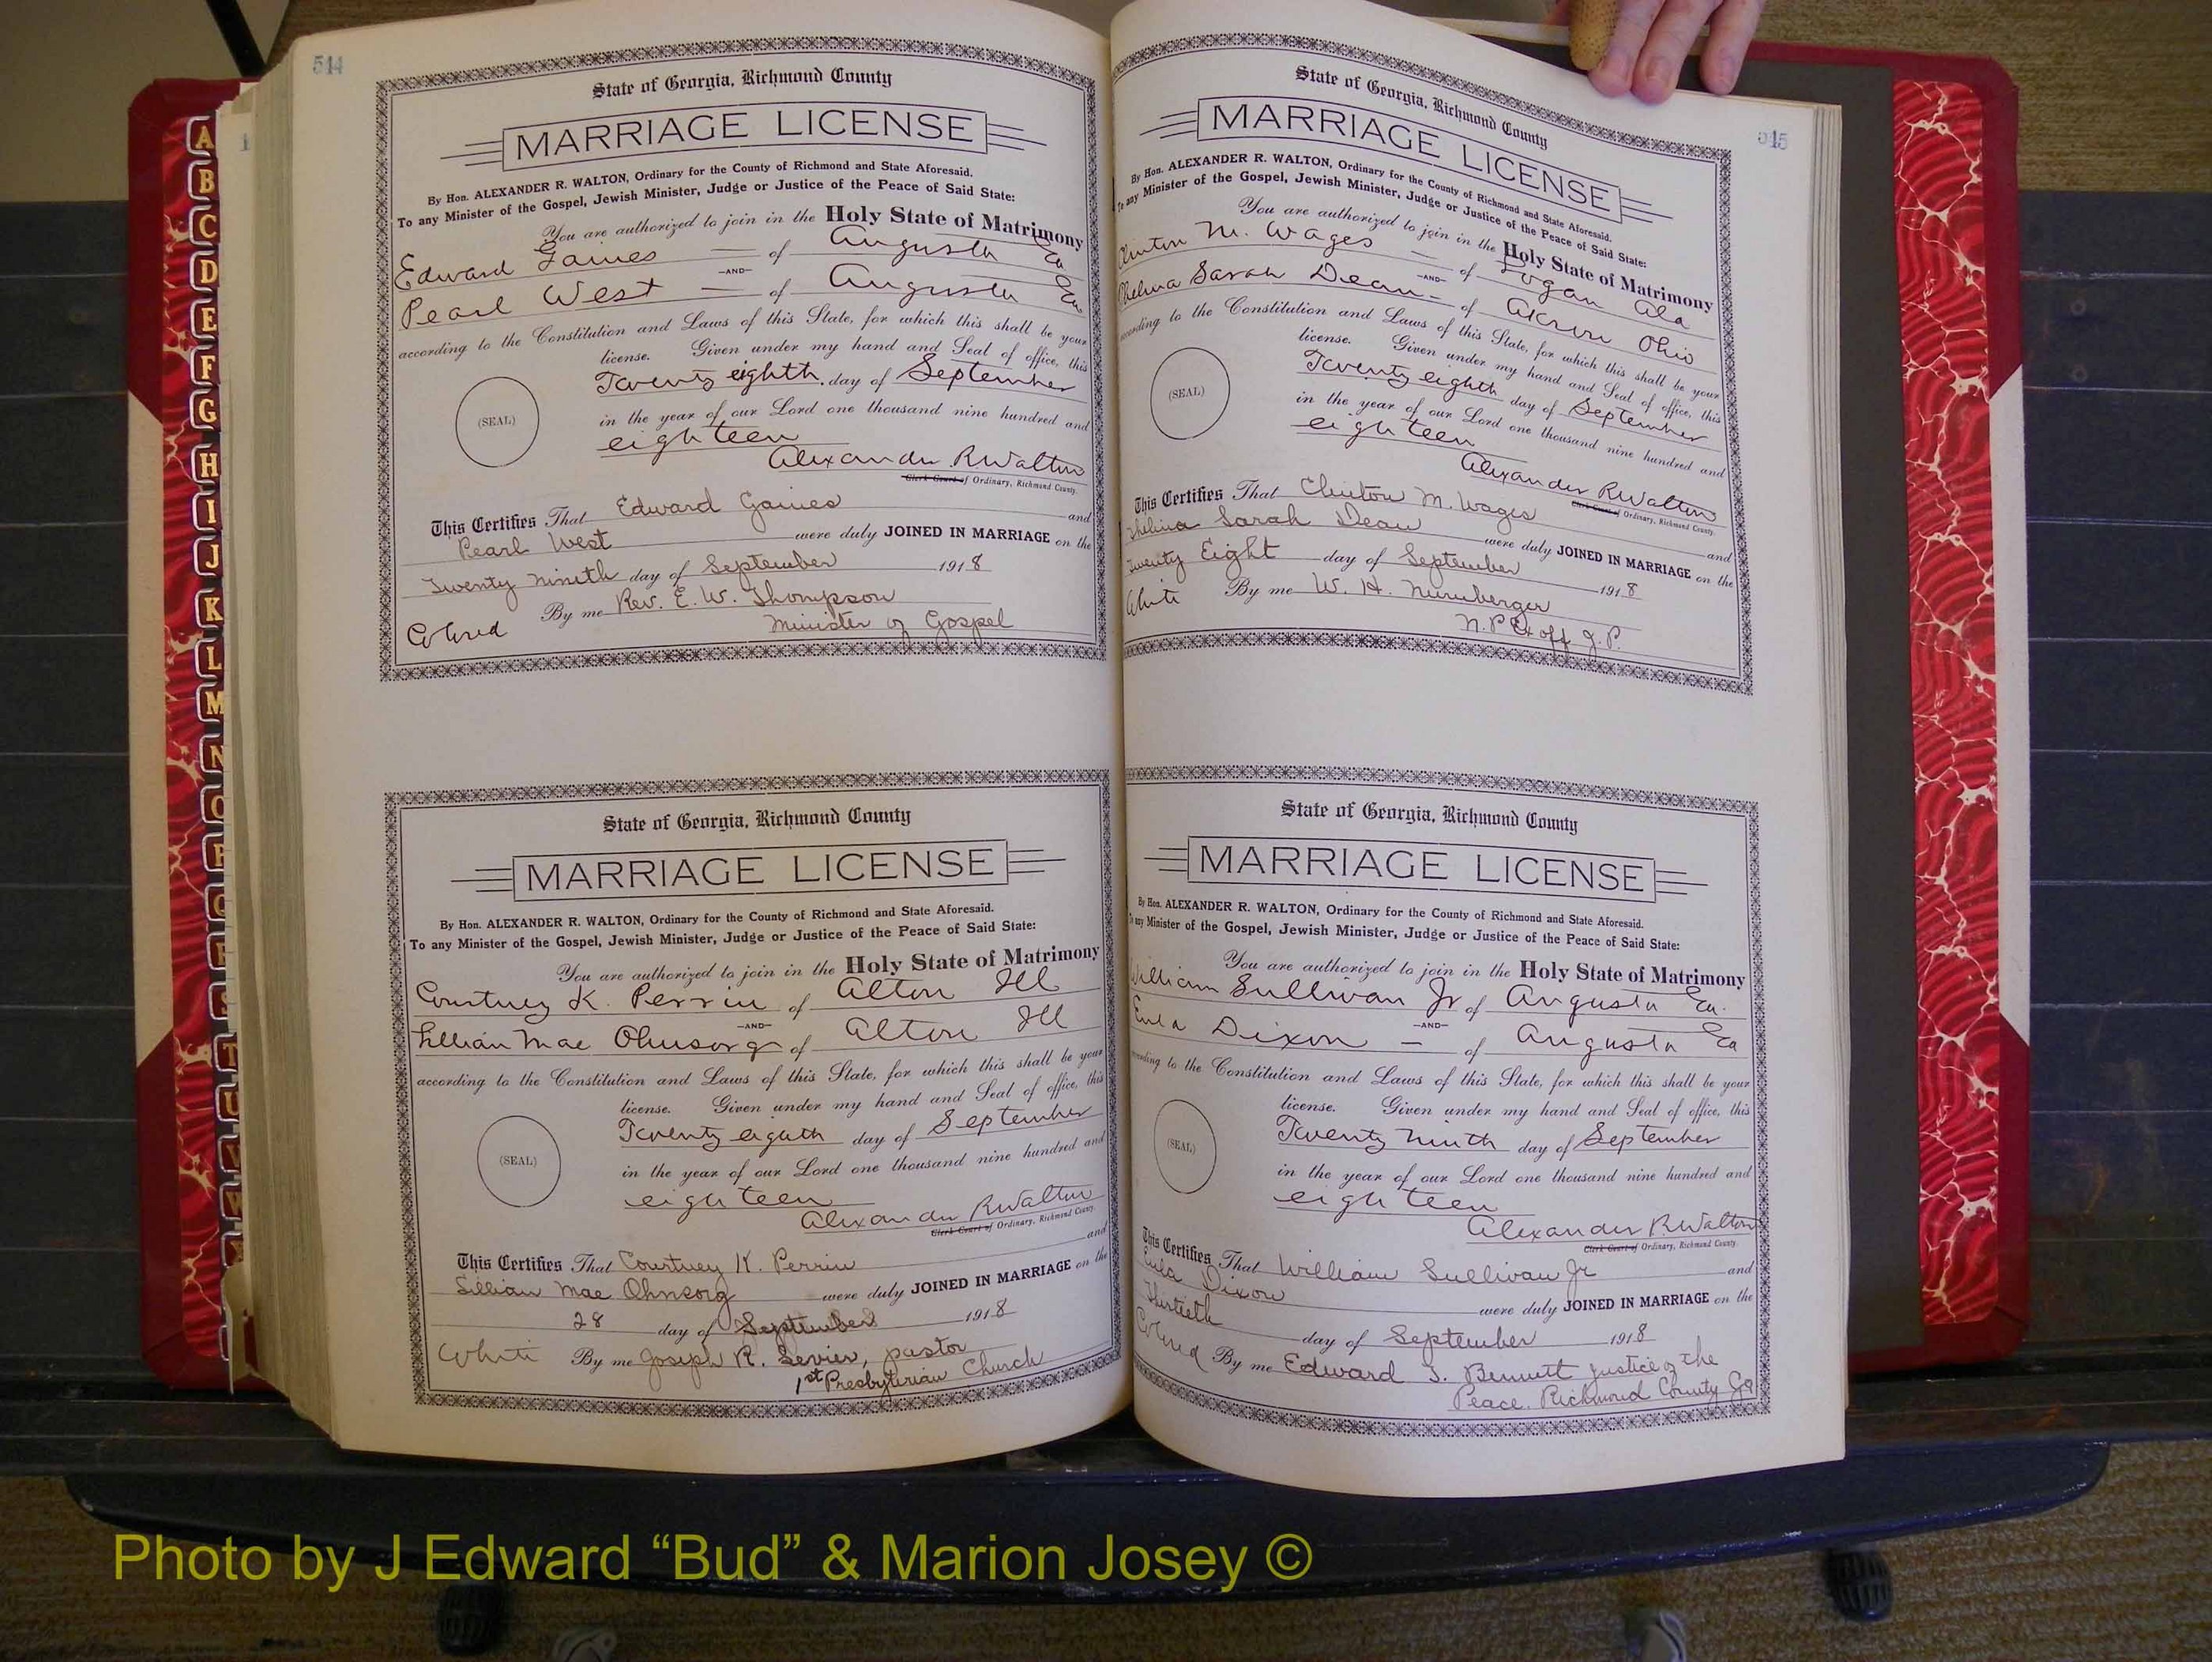 544
State of Georgia, Richmond County
MARRIAGE LICENSE
By Hon. ALEXANDER R. WALTON, Ordinary for the County of Richmond and State Aforesaid.
To any Minister of the Gospel, Jewish Minister, Judge or Justice of the Peace of Said State:
You are authorized to join in the Holy State of Matrimony
Edward Gaines — of Augusta Ga
—AND—
Pearl West — of Augusta Ga
according to the Constitution and Laws of this State, for which this shall be your
license. Given under my hand and Seal of office, this
Twenty eighth day of September
(SEAL)
in the year of our Lord one thousand nine hundred and
eighteen
Alexander R Walton
Clerk Court of Ordinary, Richmond County.
This Certifies That Edward Gaines and
Pearl West were duly JOINED IN MARRIAGE on the
Twenty ninth day of September 1918
By me Rev. E. W. Thompson
Colored Minister of Gospel
State of Georgia, Richmond County
MARRIAGE LICENSE
By Hon. ALEXANDER R. WALTON, Ordinary for the County of Richmond and State Aforesaid.
To any Minister of the Gospel, Jewish Minister, Judge or Justice of the Peace of Said State:
You are authorized to join in the Holy State of Matrimony
Courtney K. Perrin of Alton Ill
—AND—
Lillian Mae Ohnsorg of Alton Ill
according to the Constitution and Laws of this State, for which this shall be your
license. Given under my hand and Seal of office, this
Twenty eighth day of September
(SEAL)
in the year of our Lord one thousand nine hundred and
eighteen
Alexander R Walton
Clerk Court of Ordinary, Richmond County.
This Certifies That Courtney K. Perrin and
Lillian Mae Ohnsorg were duly JOINED IN MARRIAGE on the
28 day of September 1918
White By me Joseph R. Sevier, pastor
1st Presbyterian Church
545
State of Georgia, Richmond County
MARRIAGE LICENSE
By Hon. ALEXANDER R. WALTON, Ordinary for the County of Richmond and State Aforesaid.
To any Minister of the Gospel, Jewish Minister, Judge or Justice of the Peace of Said State:
You are authorized to join in the Holy State of Matrimony
Clinton M. Wages — of Logan Ala
—AND—
Thelma Sarah Dean — of Akron Ohio
according to the Constitution and Laws of this State, for which this shall be your
license. Given under my hand and Seal of office, this
Twenty eighth day of September
(SEAL)
in the year of our Lord one thousand nine hundred and
eighteen
Alexander R Walton
Clerk Court of Ordinary, Richmond County.
This Certifies That Clinton M. Wages and
Thelma Sarah Dean were duly JOINED IN MARRIAGE on the
Twenty Eight day of September 1918
White By me W. H. Nurnberger
N.P. Ex off J.P.
State of Georgia, Richmond County
MARRIAGE LICENSE
By Hon. ALEXANDER R. WALTON, Ordinary for the County of Richmond and State Aforesaid.
To any Minister of the Gospel, Jewish Minister, Judge or Justice of the Peace of Said State:
You are authorized to join in the Holy State of Matrimony
William Sullivan Jr of Augusta Ga.
—AND—
Eula Dixon — of Augusta Ga
according to the Constitution and Laws of this State, for which this shall be your
license. Given under my hand and Seal of office, this
Twenty ninth day of September
(SEAL)
in the year of our Lord one thousand nine hundred and
eighteen
Alexander R. Walton
Clerk Court of Ordinary, Richmond County.
This Certifies That William Sullivan Jr and
Eula Dixon were duly JOINED IN MARRIAGE on the
Thirtieth day of September 1918
Colored By me Edward S. Bennett Justice of the
Peace. Richmond County Ga
A
B
C
D
E
F
G
H
I
J
K
L
M
N
O
P
Q
R
S
T
U
V
W
Photo by J Edward “Bud” & Marion Josey ©